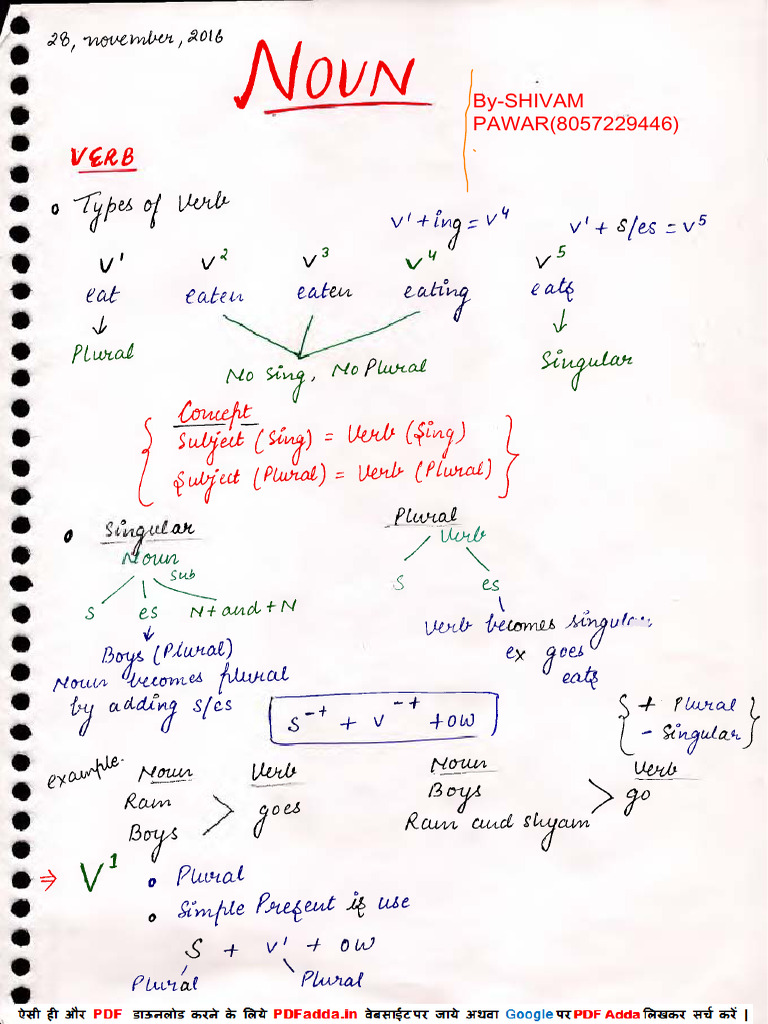 28, november, 2016
NOUN
By-SHIVAM
PAWAR(8057229446)
VERB
Types of Verb
V¹+ing = V⁴ V¹ + s/es = V⁵
V¹ V² V³ V⁴ V⁵
eat eaten eaten eating eats
Plural
No Sing, No Plural
Singular
Concept
Subject (Sing) = Verb (Sing)
Subject (Plural) = Verb (Plural)
Singular Plural
Noun Verb
Sub
S es N+and+N
S es
Boys (Plural)
Noun becomes plural
by adding s/es
Verb becomes singular
ex goes
eats
S⁻⁺ + V⁻⁺ + OW
+ Plural
- Singular
example.
Noun Verb Noun Verb
Ram goes Boys go
Boys Ram and Shyam
⇒ V¹ Plural
Simple Present is use
S + V¹ + OW
Plural Plural
ऐसी ही और PDF डाऊनलोड करने के लिये PDFadda.in वेबसाईट पर जाये अथवा Google पर PDF Adda लिखकर सर्च करें |